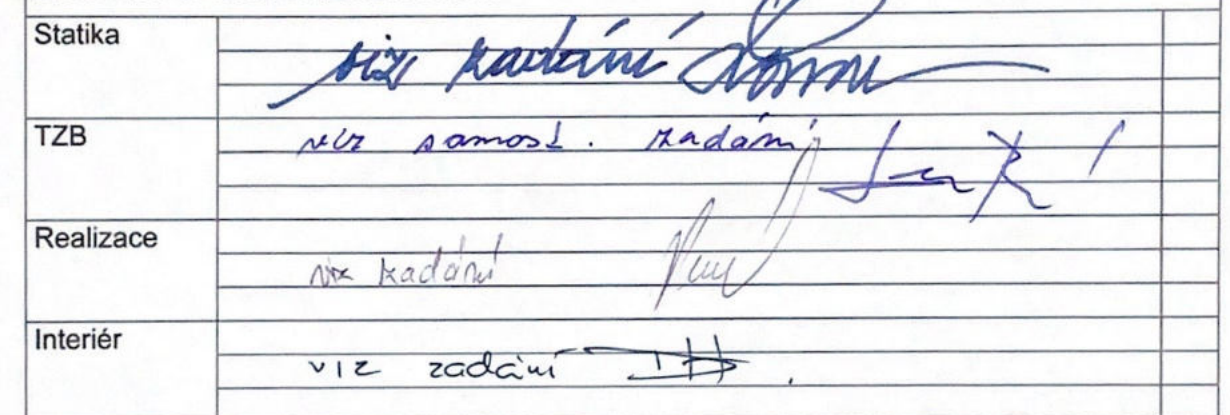 Statika
viz zadání
TZB
viz samost. zadání
Realizace
viz zadání
Interiér
viz zadání